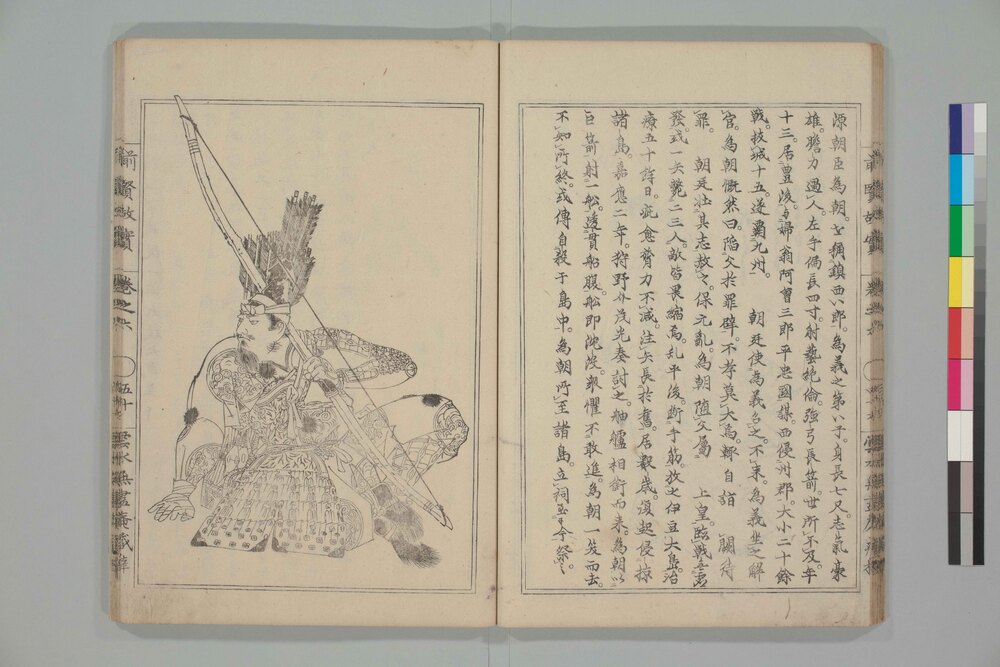 源朝臣為朝。世稱鎮西八郎。為義之第八子。身長七尺志氣豪
雄。膽力過人。左手偏長四寸。射藝絶倫。強弓長箭。世所不及。年
十三居豊後。与婦翁阿曾三郎平忠國謀。西侵州郡。大小二十餘
戰。抜城十五。遂覇九州。 朝廷使為義召之。不来。為義坐之解
官。為朝慨然曰。陥父於罪辟。不孝莫大焉。輙自詣 闕待
罪。 朝廷壮其志赦之。保元亂。為朝随父属 上皇。臨戰
發。或一矢斃二三人。敵皆畏縮焉。乱平後。断手筋放之伊豆大島治
療五十許日。疵愈膂力不减。注矢長於舊。居數歳。復起侵掠
諸島。嘉應二年。狩野介茂光奏討之。舳艫相銜而来。為朝以
巨箭射一船。透貫船腹。船即沈没。衆懼不敢進。為朝一笑而去
不知所終。或傳自殺于島中。為朝所至諸島立祠。至今祭之
前賢故實
巻之六
五十